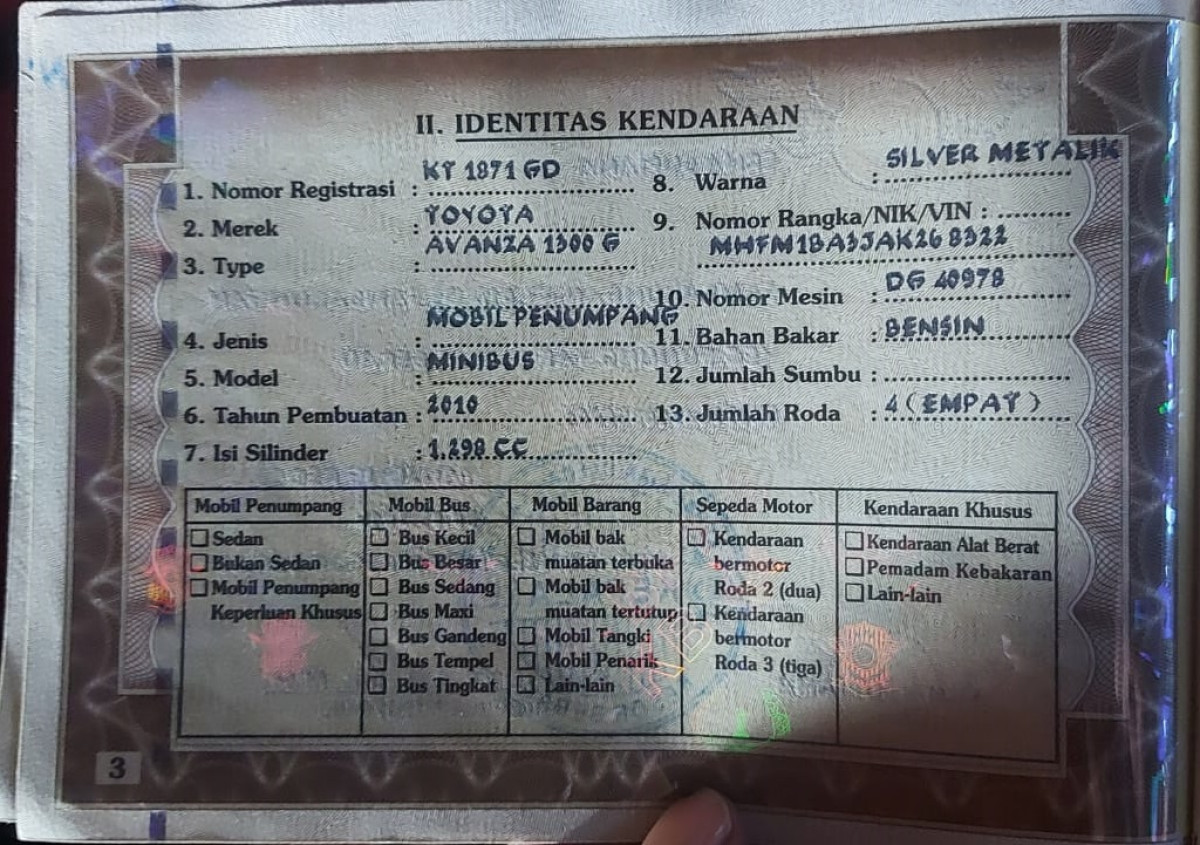 II. IDENTITAS KENDARAAN
1. Nomor Registrasi : KT 1871 GD
2. Merek : TOYOTA
3. Type : AVANZA 1300 G
4. Jenis : MOBIL PENUMPANG
5. Model : MINIBUS
6. Tahun Pembuatan : 2010
7. Isi Silinder : 1.298 CC
8. Warna : SILVER METALIK
9. Nomor Rangka/NIK/VIN :
MHFM1BA3JAK268322
10. Nomor Mesin : DG 40978
11. Bahan Bakar : BENSIN
12. Jumlah Sumbu :
13. Jumlah Roda : 4 (EMPAT)
Mobil Penumpang
Sedan
Bukan Sedan
Mobil Penumpang
Keperluan Khusus
Mobil Bus
Bus Kecil
Bus Besar
Bus Sedang
Bus Maxi
Bus Gandeng
Bus Tempel
Bus Tingkat
Mobil Barang
Mobil bak
muatan terbuka
Mobil bak
muatan tertutup
Mobil Tangki
Mobil Penarik
Lain-lain
Sepeda Motor
Kendaraan
bermotor
Roda 2 (dua)
Kendaraan
bermotor
Roda 3 (tiga)
Kendaraan Khusus
Kendaraan Alat Berat
Pemadam Kebakaran
Lain-lain
3